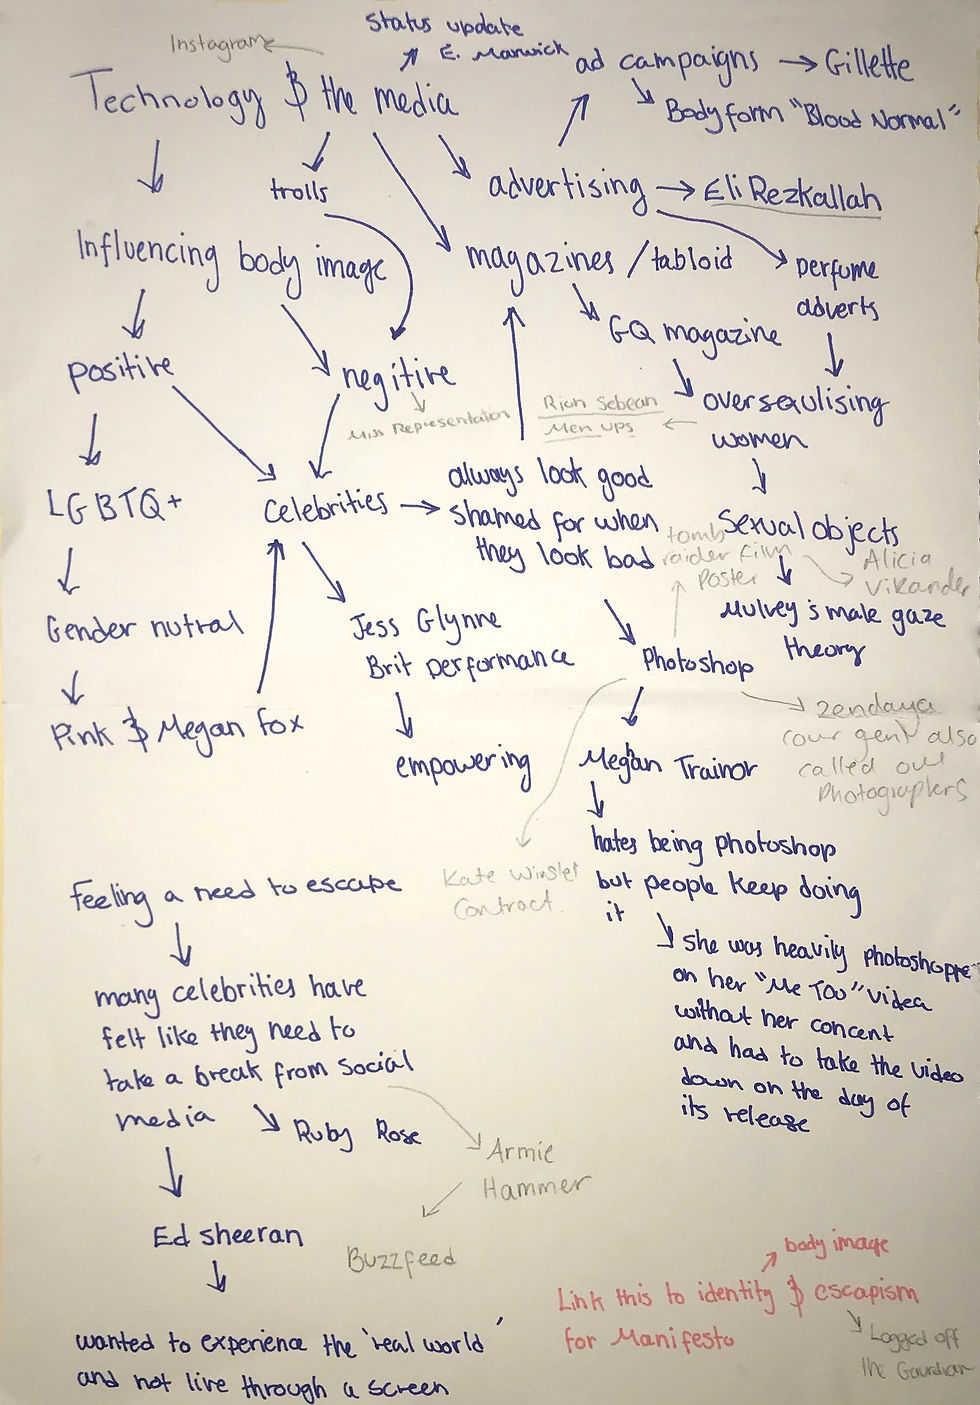 Status update
E. Marwick
Instagram
Technology & the media
ad campaigns → Gillette
Bodyform "Blood Normal"
trolls
advertising → Eli Rezkallah
Influencing body image
magazines / tabloid
perfume
adverts
GQ magazine
positive
negitive
Miss Representation
Rion Sebean
Men Ups
oversexulising
women
LGBTQ+
Celebrities →
always look good
shamed for when
they look bad
Sexual objects
tomb
raider film
Poster
Alicia
Vikander
Mulvey's male gaze
theory
Gender nutral
Jess Glynne
Brit performance
Photoshop
Pink & Megan Fox
empowering
Megan Trainor
Zendaya
also
called out
Photographers
hates being photoshop
but people keep doing
it
Kate Winslet
Contract.
she was heavily photoshoppe
on her "Me Too" video
without her concent
and had to take the video
down on the day of
its release
Feeling a need to escape
many celebrities have
felt like they need to
take a break from social
media
Ruby Rose
Armie
Hammer
Buzzfeed
Ed sheeran
wanted to experience the 'real world'
and not live through a screen
body image
Link this to identity & escapism
for Manifesto
Logged off
The Gaurdian